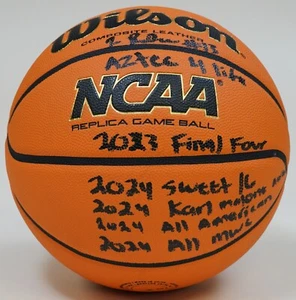 Wilson
COMPOSITE LEATHER
#13
Aztec 4 life
NCAA
REPLICA GAME BALL
2023 Final Four
2024 Sweet 16
2024 Karl malone
2024 All American
2024 All mwc